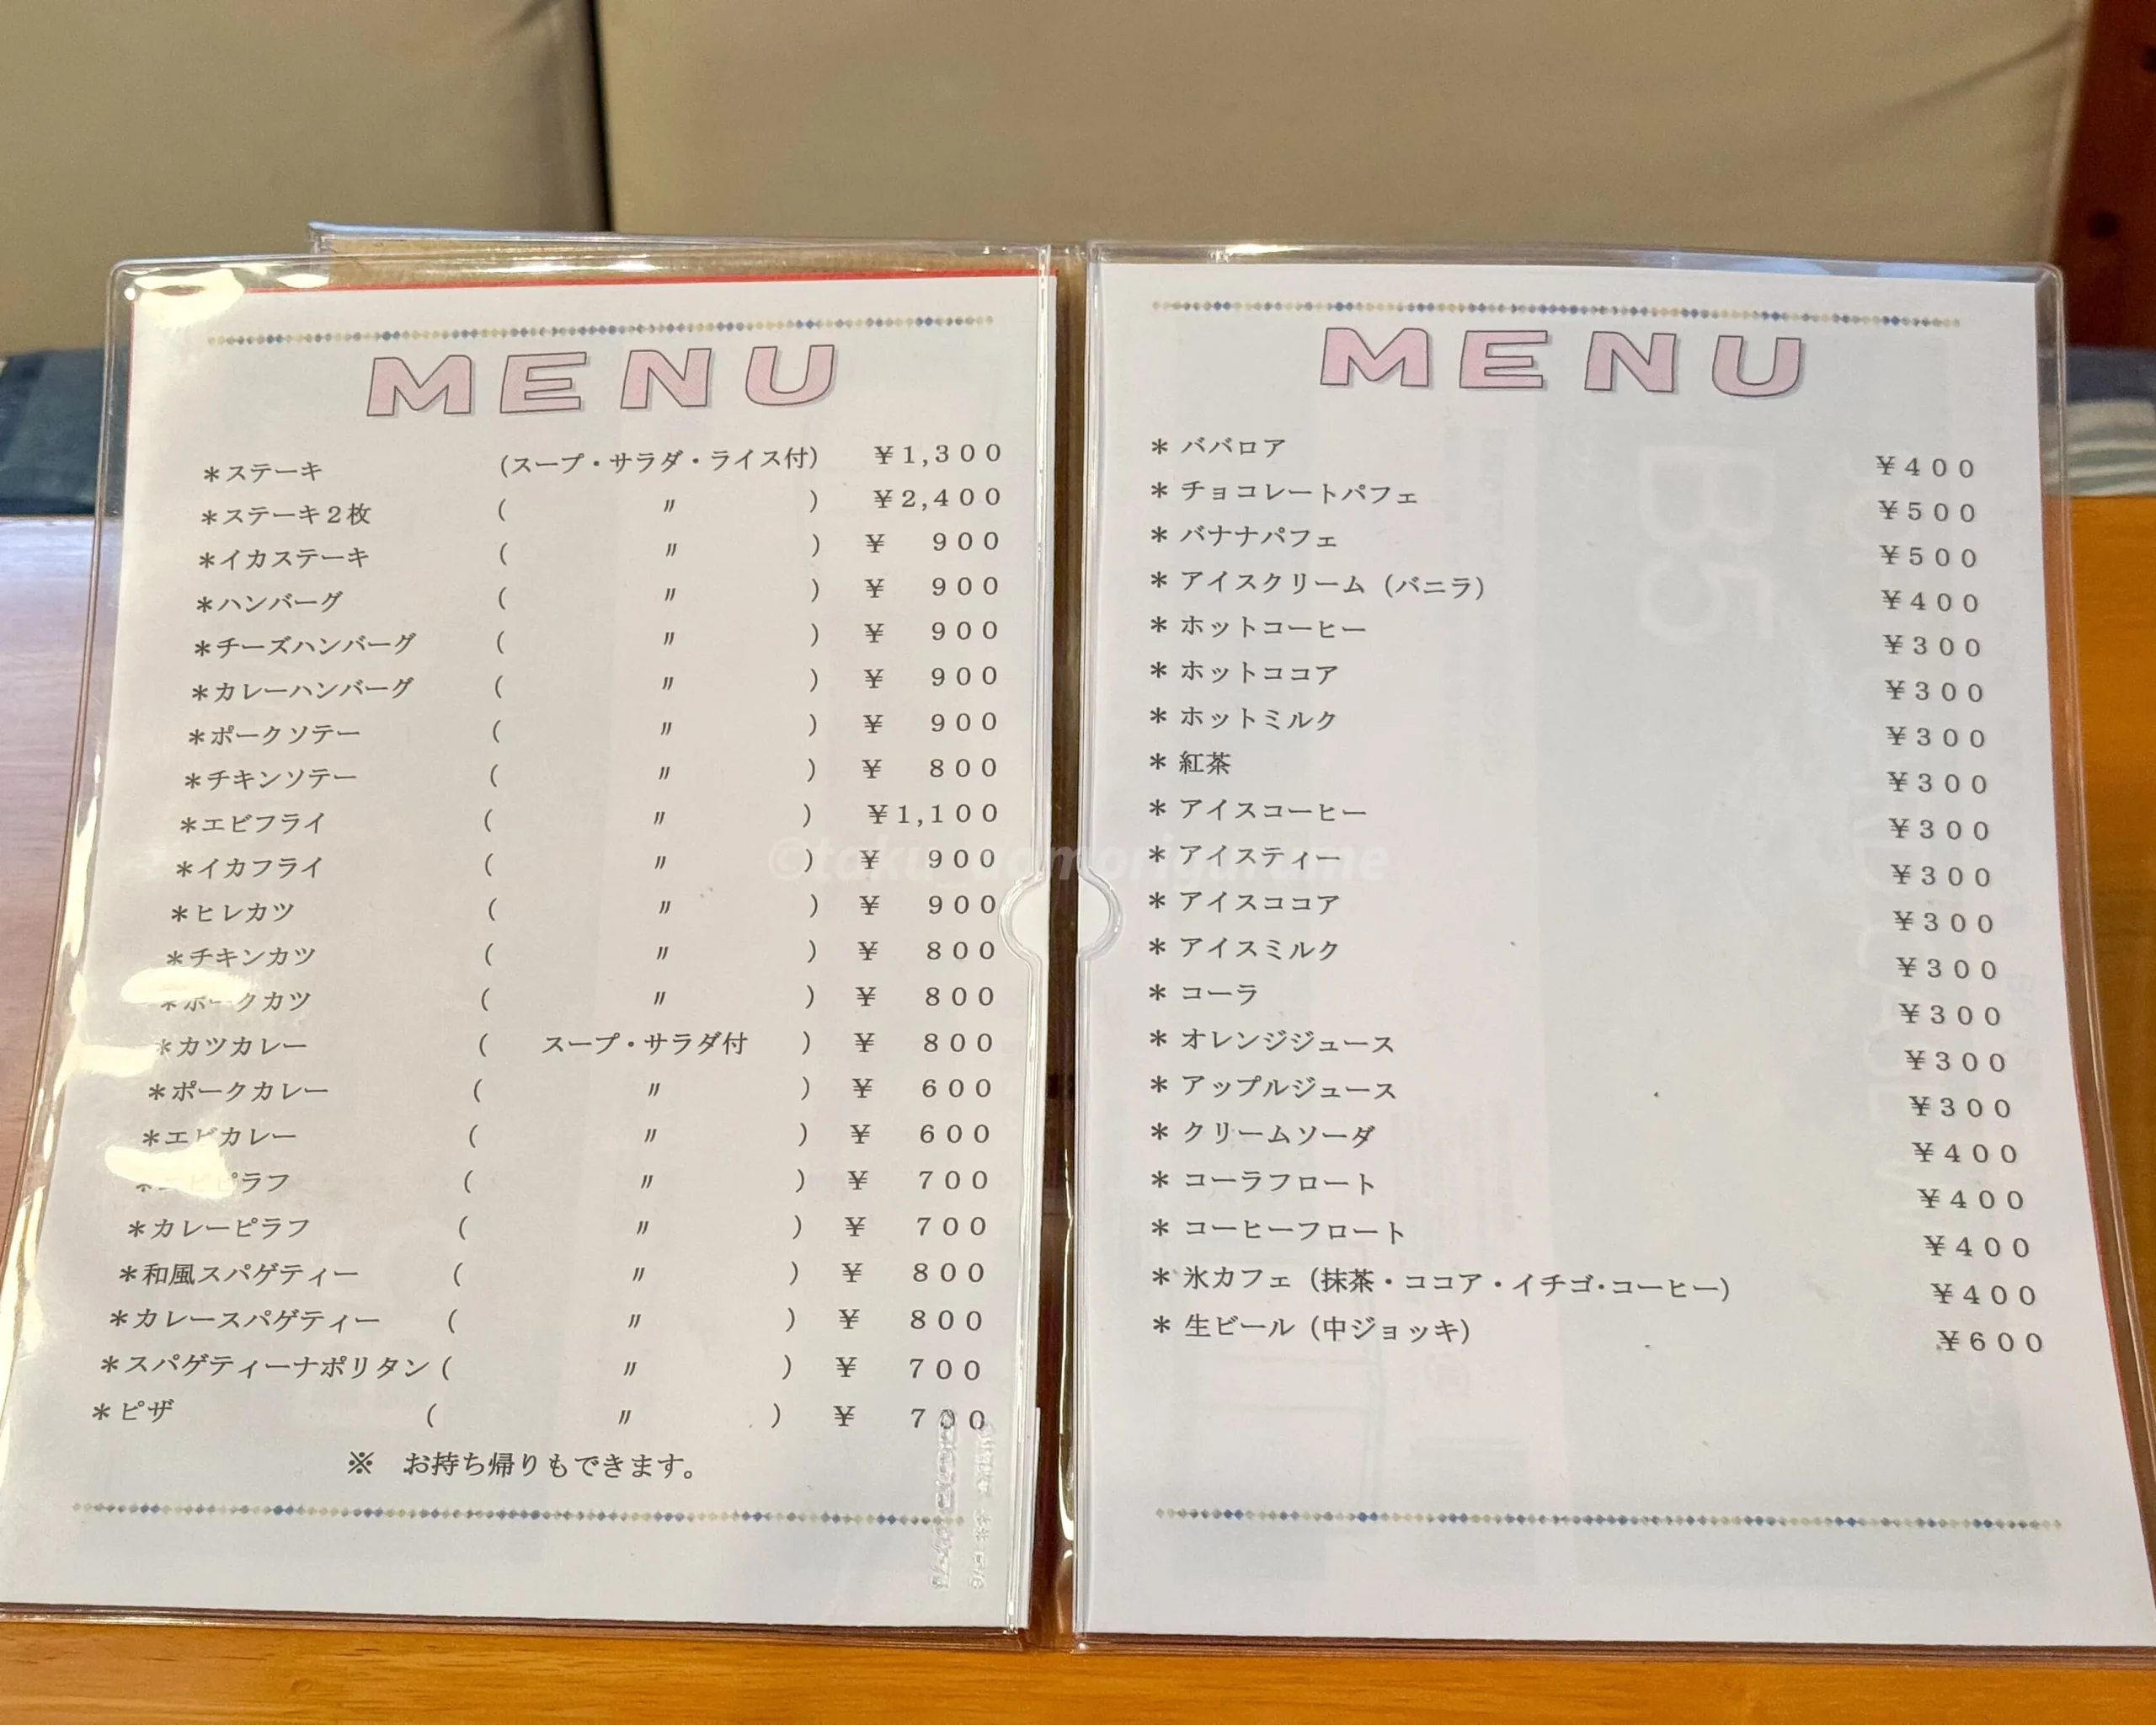 MENU
＊ステーキ (スープ・サラダ・ライス付) ￥1,300
＊ステーキ２枚 ( 〃 ) ￥2,400
＊イカステーキ ( 〃 ) ￥ 900
＊ハンバーグ ( 〃 ) ￥ 900
＊チーズハンバーグ ( 〃 ) ￥ 900
＊カレーハンバーグ ( 〃 ) ￥ 900
＊ポークソテー ( 〃 ) ￥ 900
＊チキンソテー ( 〃 ) ￥ 800
＊エビフライ ( 〃 ) ￥1,100
＊イカフライ ( 〃 ) ￥ 900
＊ヒレカツ ( 〃 ) ￥ 900
＊チキンカツ ( 〃 ) ￥ 800
＊ポークカツ ( 〃 ) ￥ 800
＊カツカレー ( スープ・サラダ付 ) ￥ 800
＊ポークカレー ( 〃 ) ￥ 600
＊エビカレー ( 〃 ) ￥ 600
＊ピラフ ( 〃 ) ￥ 700
＊カレーピラフ ( 〃 ) ￥ 700
＊和風スパゲティー ( 〃 ) ￥ 800
＊カレースパゲティー ( 〃 ) ￥ 800
＊スパゲティーナポリタン ( 〃 ) ￥ 700
＊ピザ ( 〃 ) ￥ 700
※ お持ち帰りもできます。
MENU
＊ ババロア ￥400
＊ チョコレートパフェ ￥500
＊ バナナパフェ ￥500
＊ アイスクリーム（バニラ） ￥400
＊ ホットコーヒー ￥300
＊ ホットココア ￥300
＊ ホットミルク ￥300
＊ 紅茶 ￥300
＊ アイスコーヒー ￥300
＊ アイスティー ￥300
＊ アイスココア ￥300
＊ アイスミルク ￥300
＊ コーラ ￥300
＊ オレンジジュース ￥300
＊ アップルジュース ￥300
＊ クリームソーダ ￥400
＊ コーラフロート ￥400
＊ コーヒーフロート ￥400
＊ 氷カフェ（抹茶・ココア・イチゴ･コーヒー） ￥400
＊ 生ビール（中ジョッキ） ￥600
©taku_aomorigurume